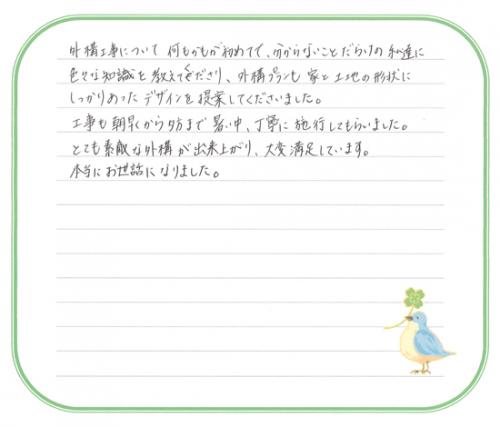 外構工事について 何もかもが初めてで、分からないことだらけの 私達に
色々な知識を教えてくださり、外構プランも 家と土地の形状に
しっかりあった デザインを提案してくださいました。
工事も朝早くから夕方まで暑い中、丁寧に施行してもらいました。
とても素敵な外構が出来上がり、大変満足しています。
本当にお世話になりました。